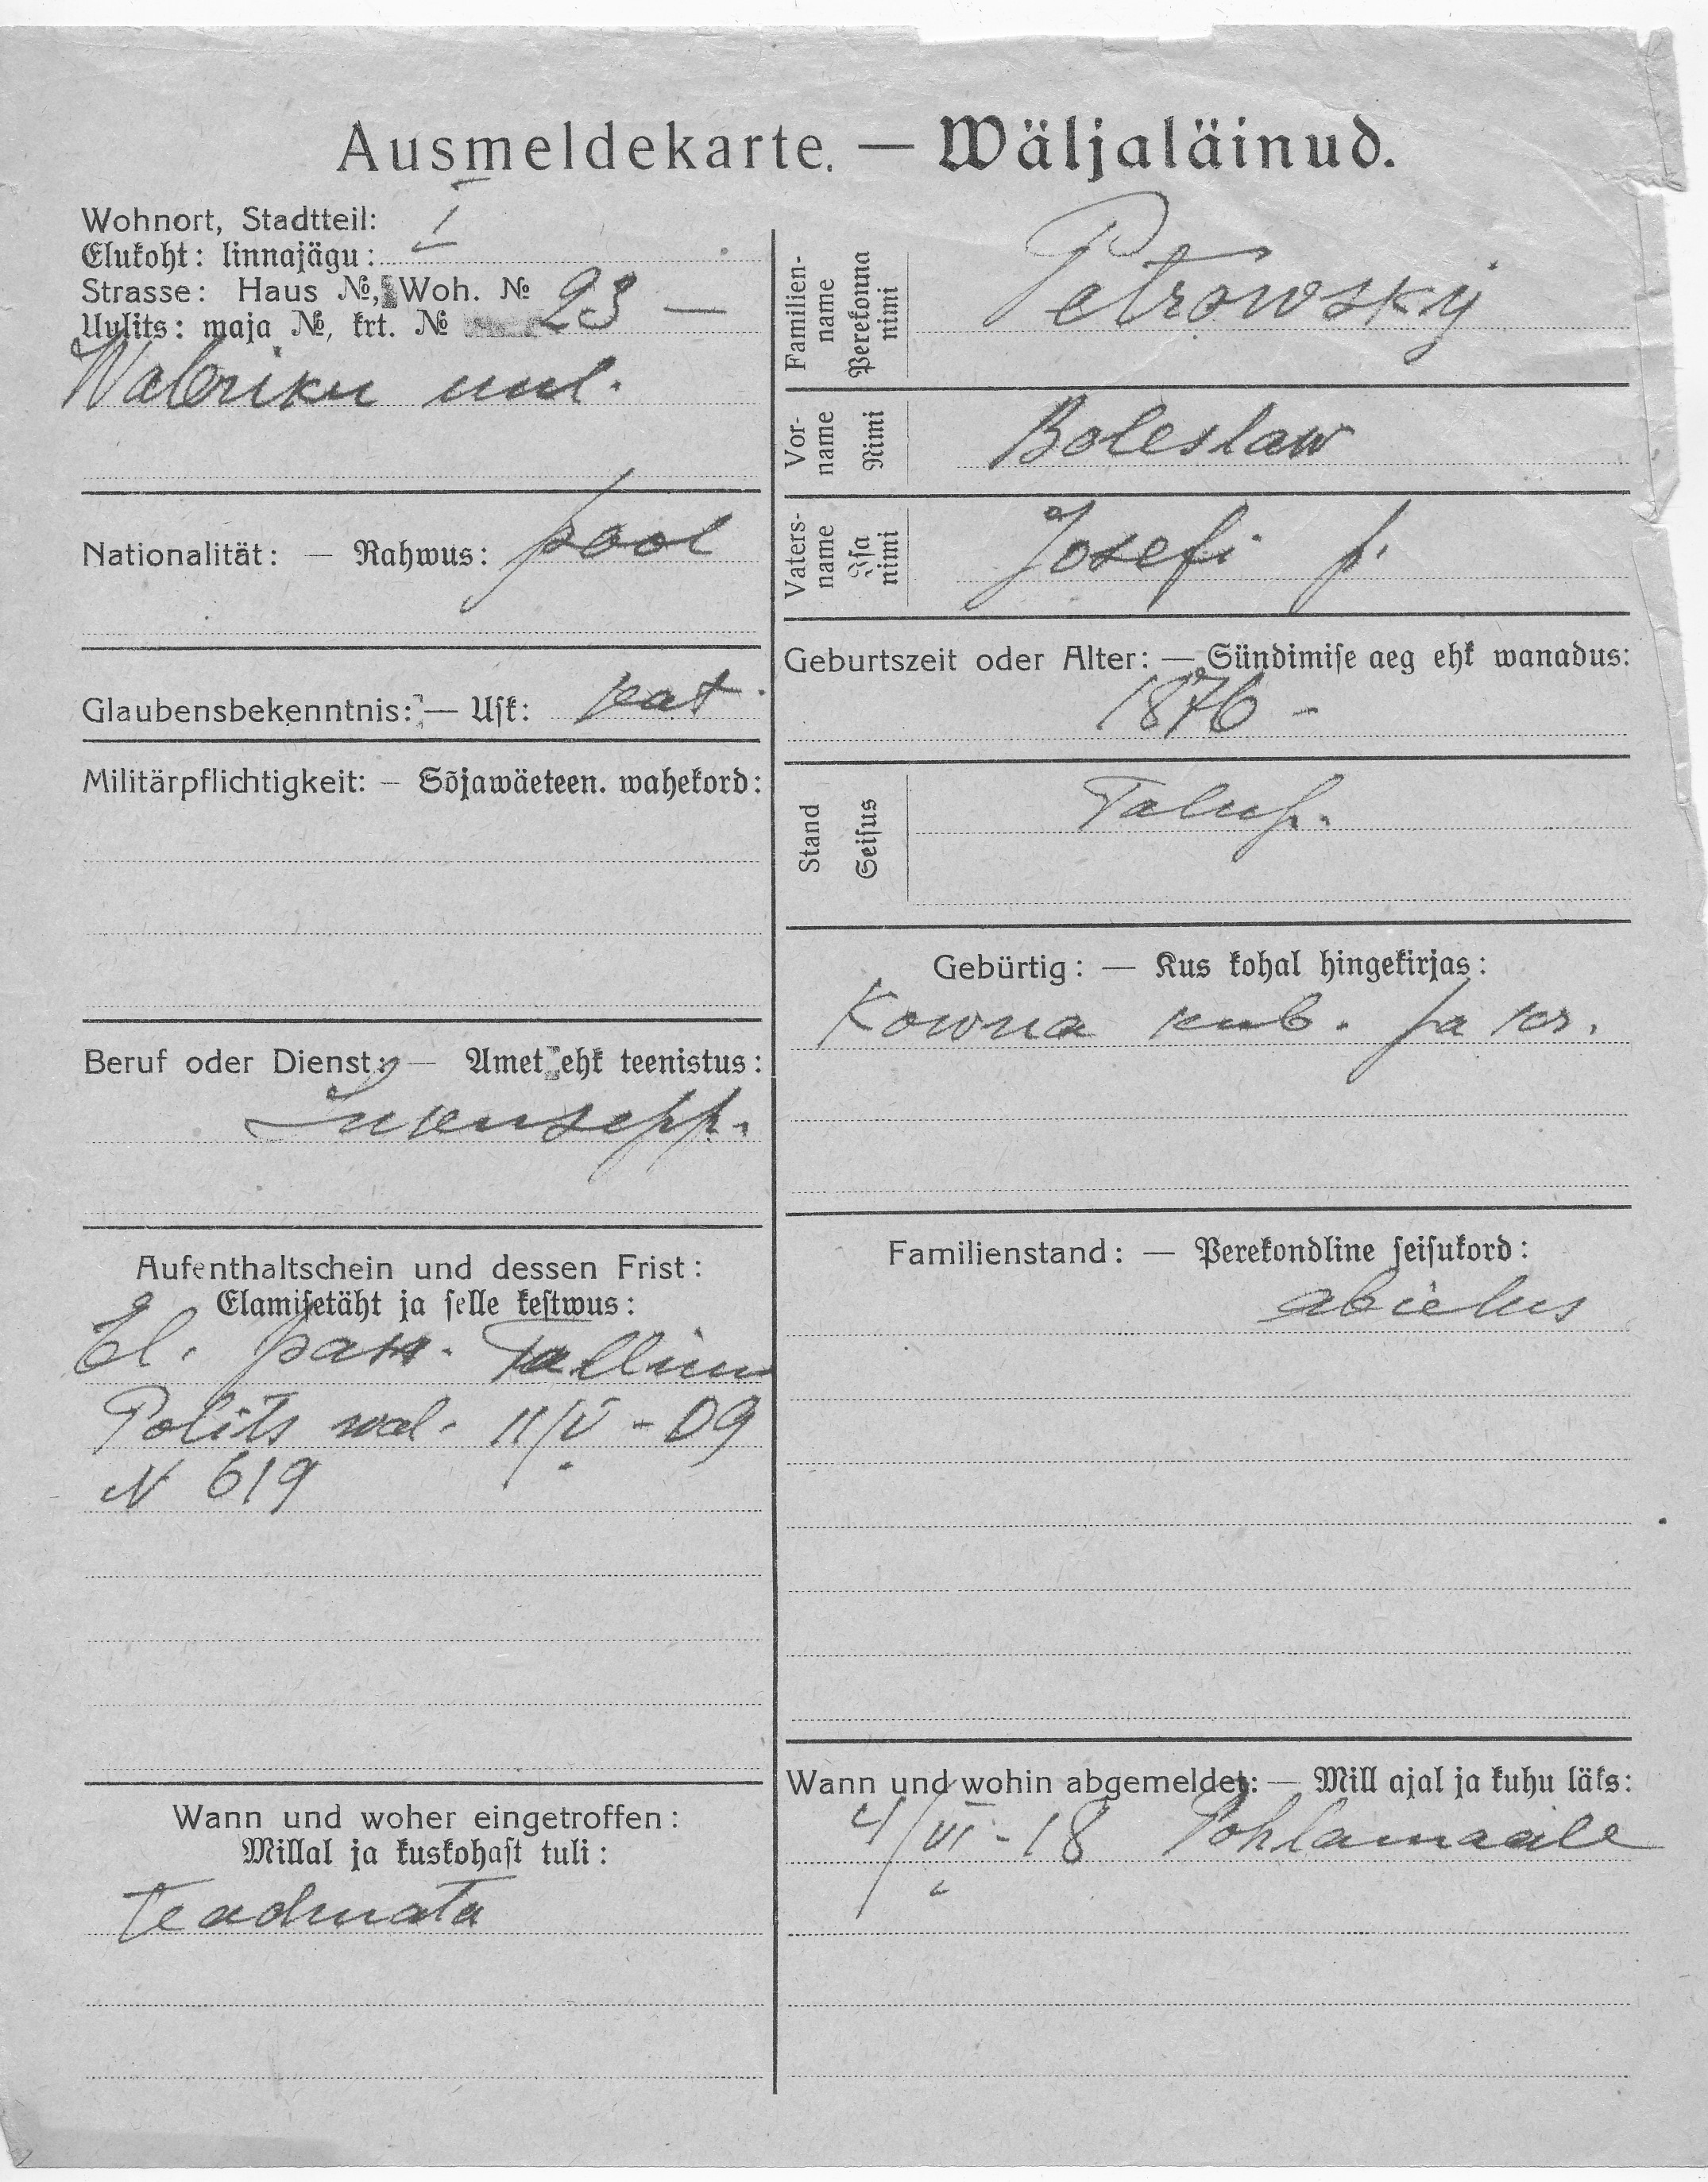 Ausmeldekarte. — Wäljaläinud.
Wohnort, Stadtteil:
Elukoht: linnajägu: I
Strasse: Haus №, Woh. №
Uulits: maja №, krt. № 23 —
Wabriku uul.
Nationalität: — Rahwus: pool
Glaubensbekenntnis: — Usk: kat.
Militärpflichtigkeit: — Sõjawäeteen. wahekord:
Beruf oder Dienst: — Amet ehk teenistus:
Lukusepp.
Aufenthaltschein und dessen Frist:
Elamisetäht ja selle kestwus:
El. pass. Tallinna
Polits wal. 11/V - 09
N 619
Wann und woher eingetroffen:
Millal ja kuskohast tuli:
teadmata
Familien-
name
Perekonna
nimi
Petrowsky
Vor-
name
Nimi
Boleslaw
Vaters-
name
Isa
nimi
Josefi p.
Geburtszeit oder Alter: — Sündimise aeg ehk wanadus:
1876 -
Stand
Seisus
Talup.
Gebürtig: — Kus kohal hingekirjas:
Kowna kub. ja kr.
Familienstand: — Perekondline seisukord:
abielus
Wann und wohin abgemeldet: — Mill ajal ja kuhu läks:
4/VI - 18 Pohlamaale